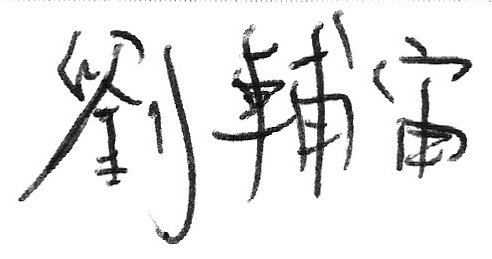 劉輔宙